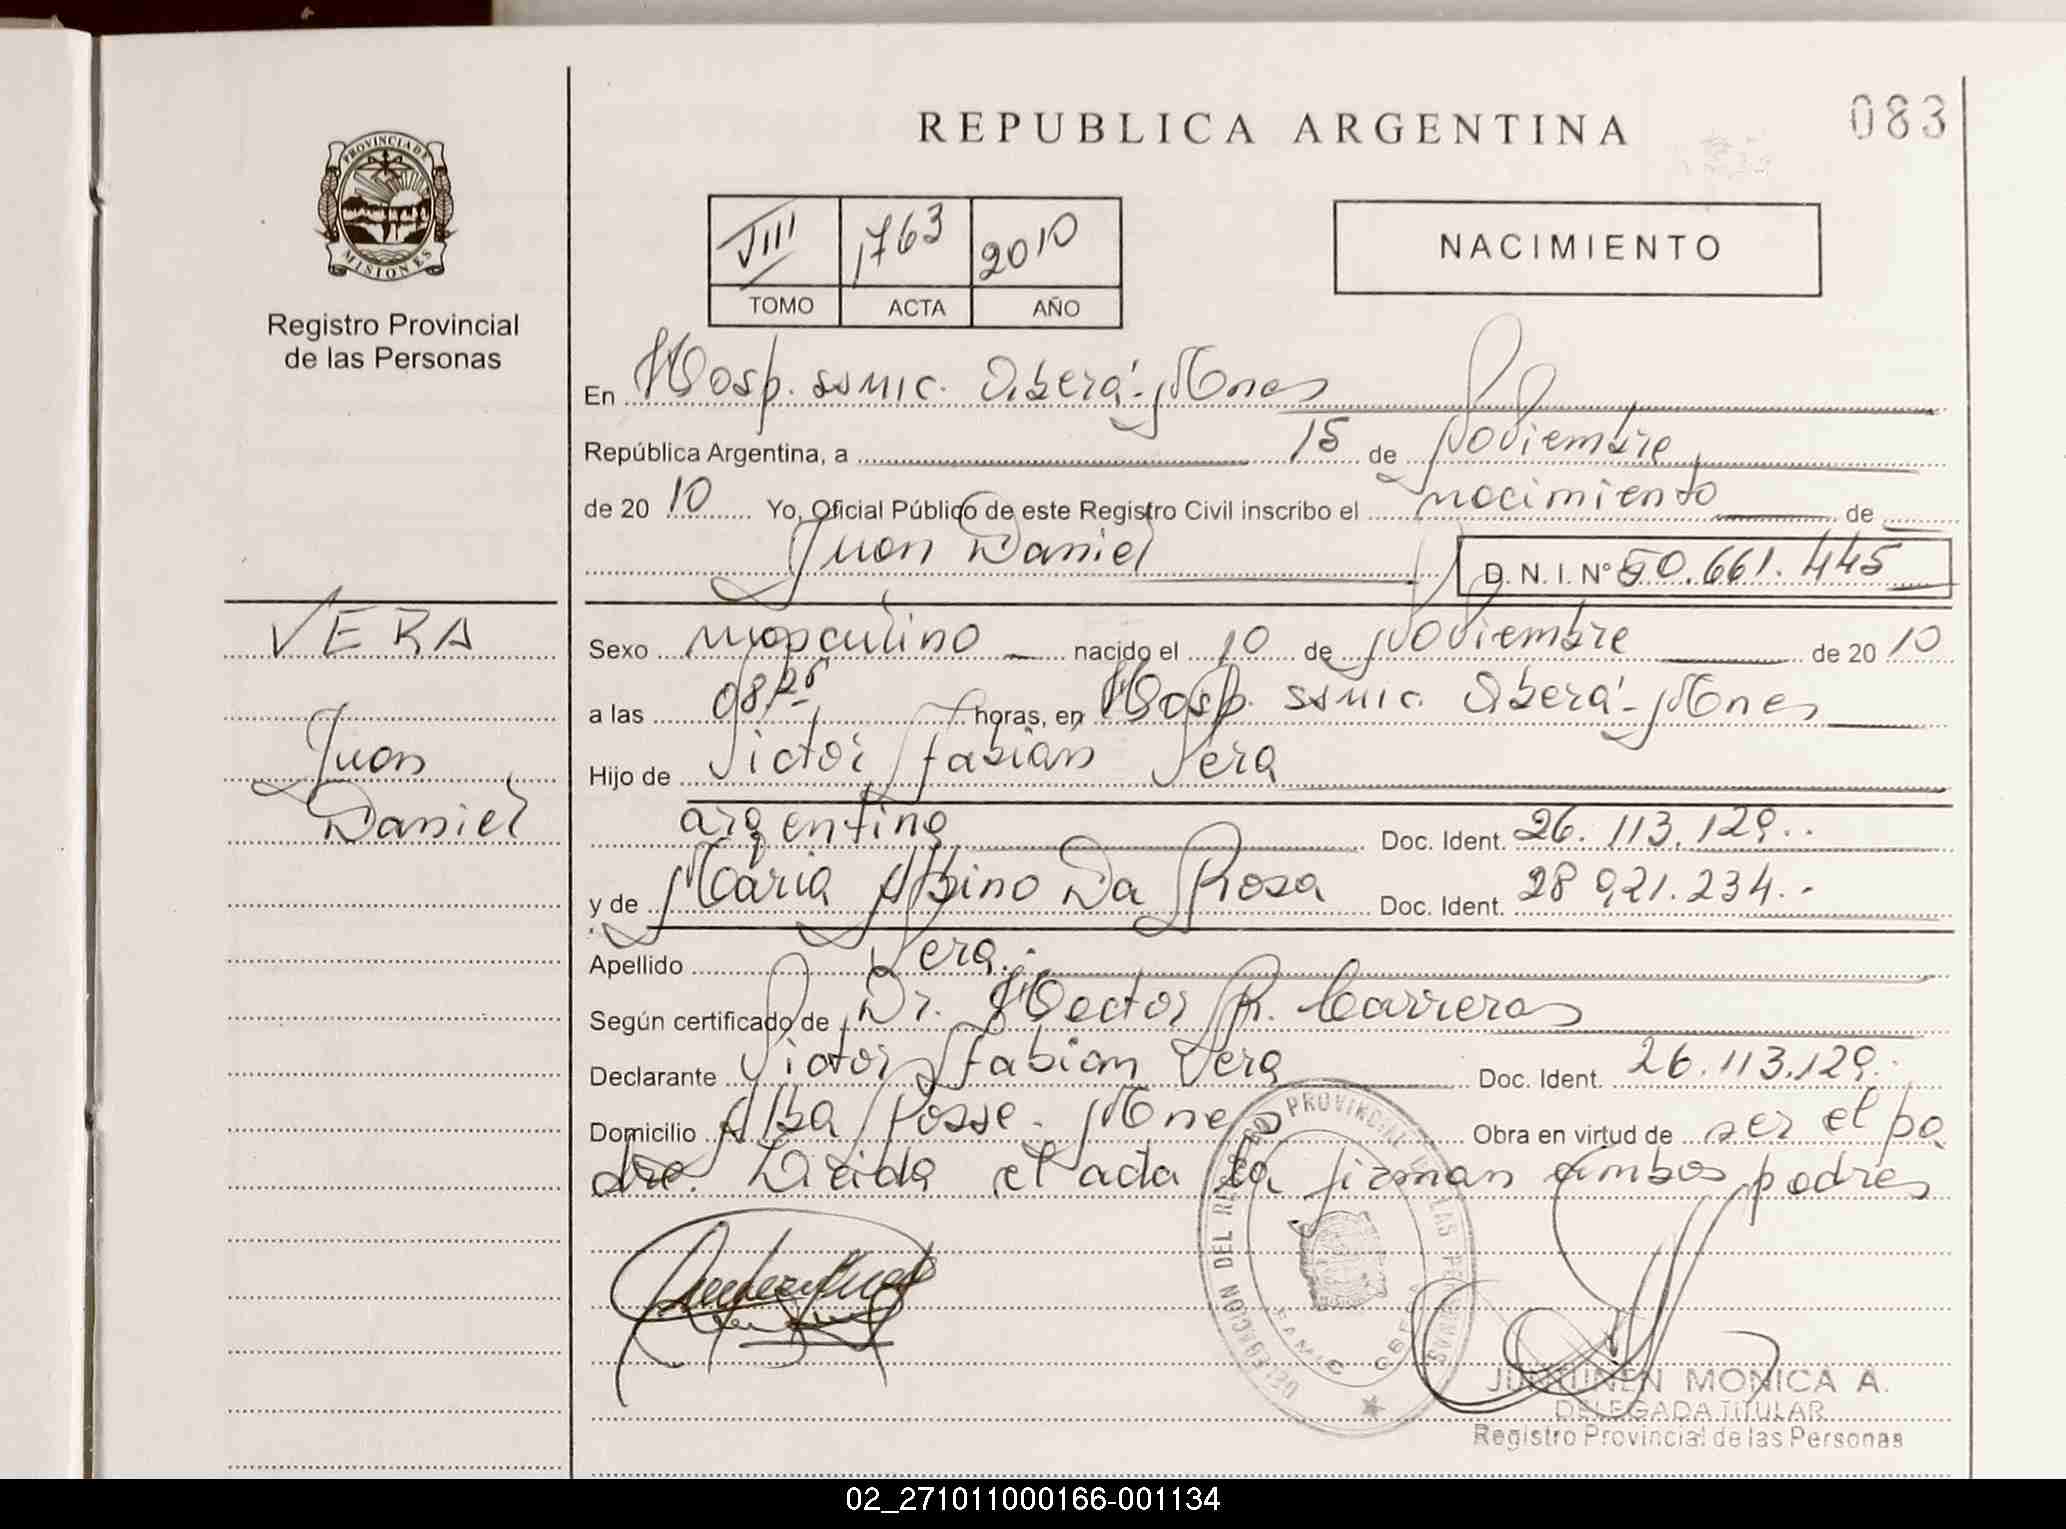 REPUBLICA ARGENTINA
083
PROVINCIA DE
MISIONES
Registro Provincial
de las Personas
VIII 1763 2010
TOMO ACTA AÑO
NACIMIENTO
En Hosp. SSMIC. Oberá-Mnes
República Argentina, a 15 de Noviembre
de 20 10 Yo, Oficial Público de este Registro Civil inscribo el nacimiento de
Juan Daniel D. N. I. Nº 50.661.445
VERA
Juan
Daniel
Sexo masculino nacido el 10 de Noviembre de 20 10
a las 08 25 horas, en Hosp. SSMIC. Oberá-Mnes
Hijo de Victor Fabián Vera
argentino Doc. Ident. 26.113.129..
y de Maria Albino Da Rosa Doc. Ident. 28 921.234.-
Apellido Vera.
Según certificado de Dr. Hector R. Carreras
Declarante Victor Fabian Vera Doc. Ident. 26.113.129.
Domicilio Alba Posse. Mnes Obra en virtud de ser el pa
dre. Leida el acta la firman ambos padres
DELEGACION DEL REGISTRO PROVINCIAL DE LAS PERSONAS
SAMIC OBERA
MONICA A.
DELEGADA TITULAR
Registro Provincial de las Personas
02_271011000166-001134